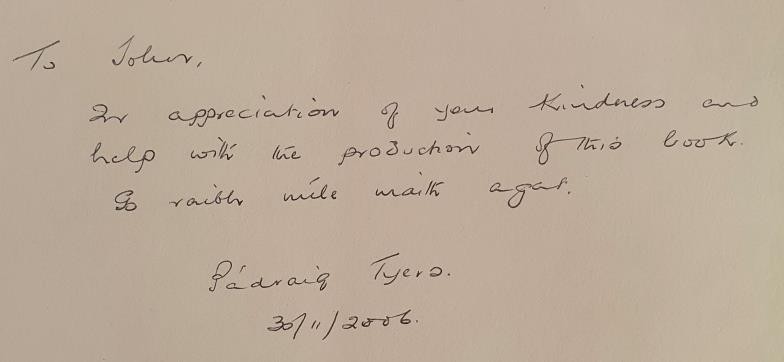 To John,
In appreciation of your kindness and
help with the production of this book.
Go raibh míle maith agat.
Pádraig Tyers.
30/11/2006.